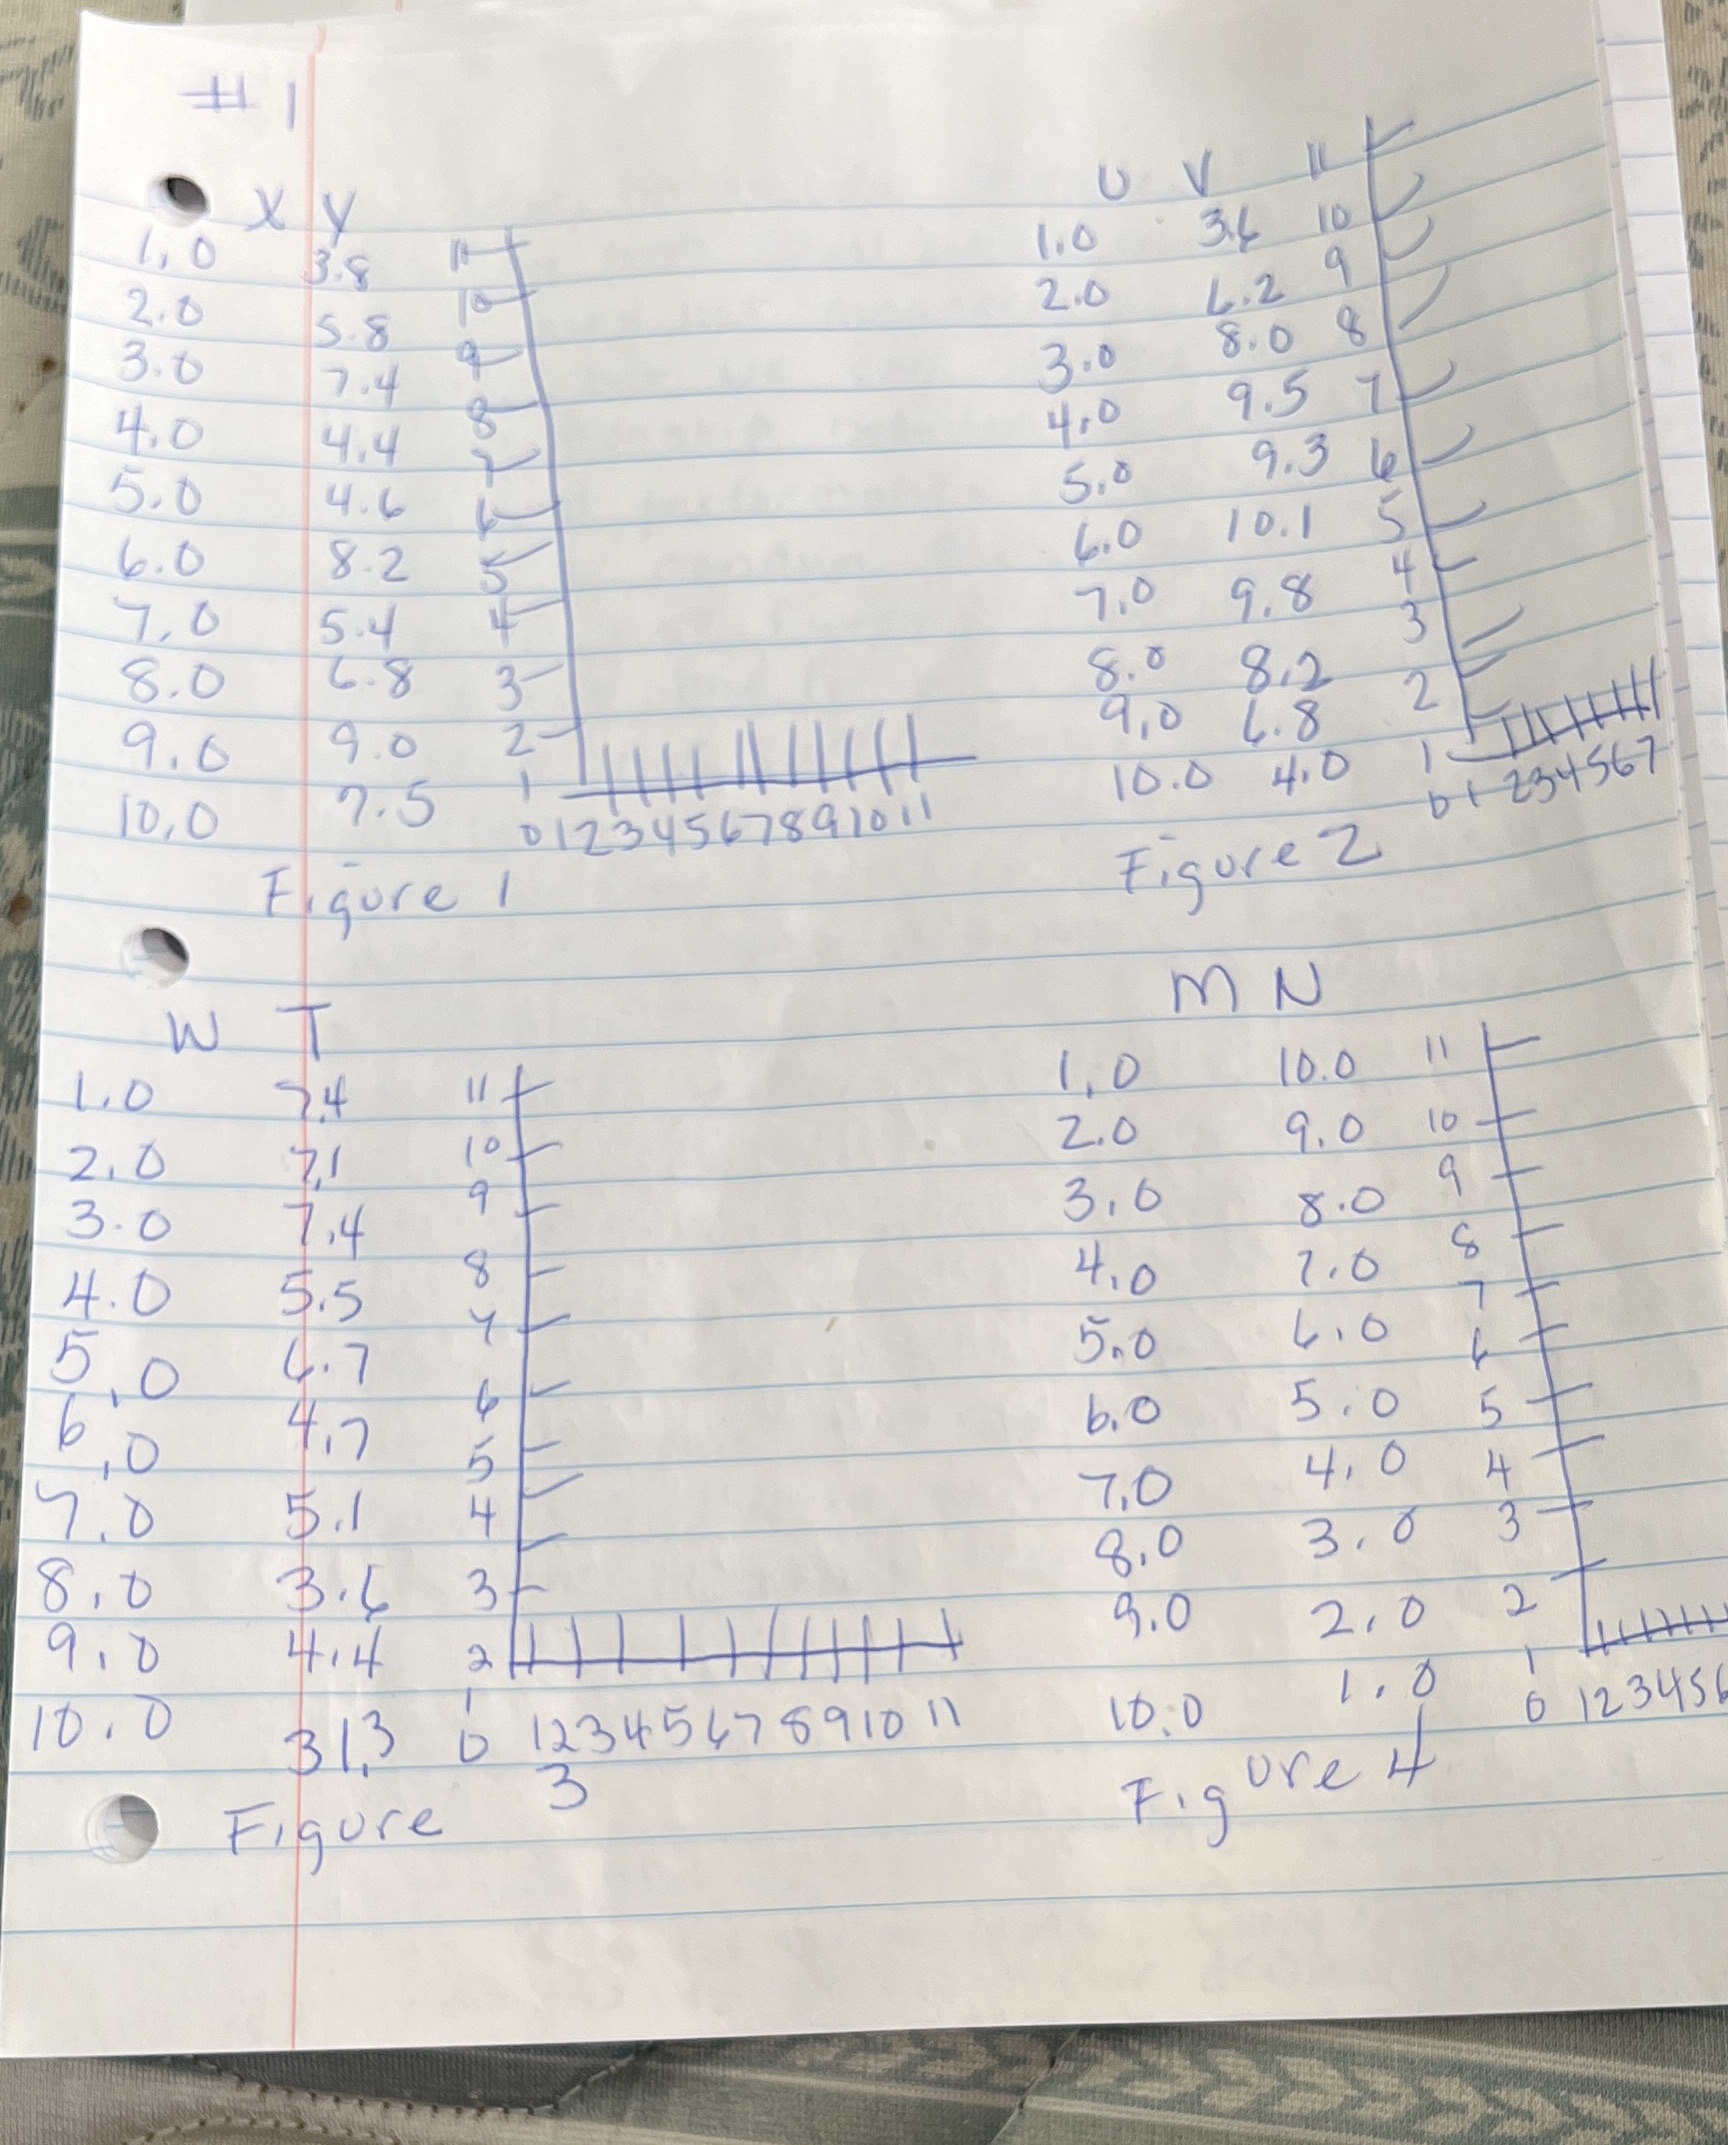 #1
X Y
1.0 3.8 11
2.0 5.8 10
3.0 7.4 9
4.0 4.4 8
5.0 4.6 7
6.0 8.2 6
7.0 5.4 5
8.0 6.8 4
9.0 9.0 3
10.0 7.5 2
1
0 1 2 3 4 5 6 7 8 9 10 11
Figure 1
U V 11
1.0 3.6 10
2.0 6.2 9
3.0 8.0 8
4.0 9.5 7
5.0 9.3 6
6.0 10.1 5
7.0 9.8 4
8.0 8.2 3
9.0 6.8 2
10.0 4.0 1
0 1 2 3 4 5 6 7
Figure 2
W T
1.0 7.4 11
2.0 7.1 10
3.0 7.4 9
4.0 5.5 8
5.0 6.7 7
6.0 4.7 6
7.0 5.1 5
8.0 3.6 4
9.0 4.4 3
10.0 31.3 2
1
0 1 2 3 4 5 6 7 8 9 10 11
Figure 3
M N
1.0 10.0 11
2.0 9.0 10
3.0 8.0 9
4.0 7.0 8
5.0 6.0 7
6.0 5.0 6
7.0 4.0 5
8.0 3.0 4
9.0 2.0 3
10.0 1.0 2
1
0 1 2 3 4 5 6
Figure 4